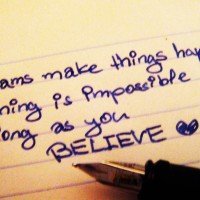 ams make things hap
hing is impossible
long as you
BELIEVE